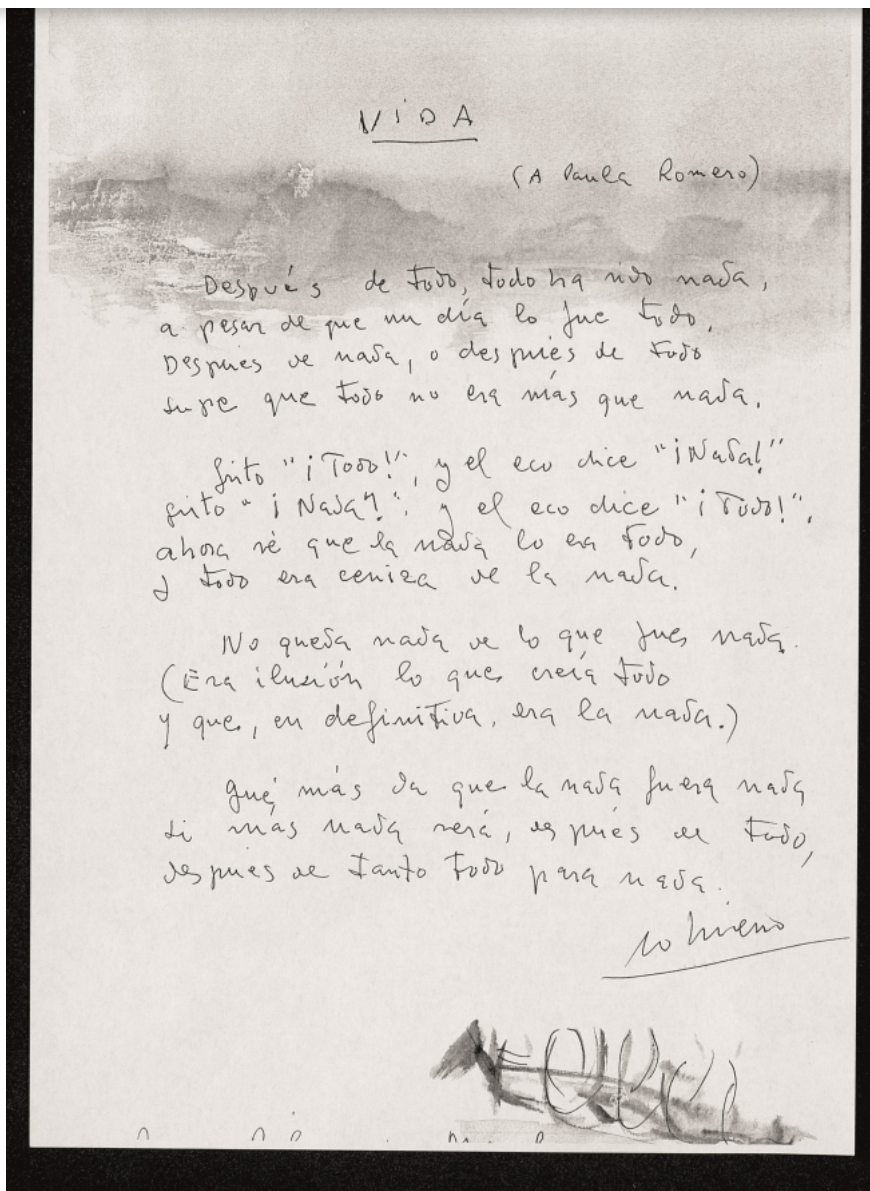 VIDA
(A Paula Romero)
Después de todo, todo ha sido nada,
a pesar de que un día lo fue todo.
Después de nada, o después de todo
supe que todo no era más que nada.
Grito "¡Todo!", y el eco dice "¡Nada!"
Grito "¡Nada!", y el eco dice "¡Todo!".
ahora sé que la nada lo era todo,
y todo era ceniza de la nada.
No queda nada de lo que fue nada.
(Era ilusión lo que creía todo
y que, en definitiva, era la nada.)
Qué más da que la nada fuera nada
si más nada será, después de todo,
después de tanto todo para nada.